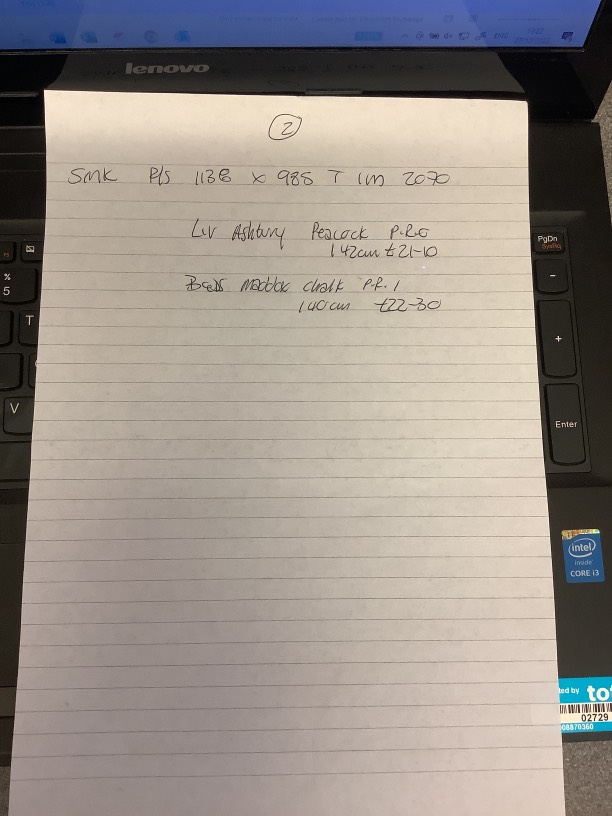 lenovo
2
SMK P/S 1138 x 985 T 1m 2070
Liv Ashbury Peacock P.R.O
142cm £21-10
Beds Maddox chalk P.R. 1
140cm £22-30
PgDn
SysRq
%
5
-
T
+
V
Enter
intel
inside
CORE i3
ted by to
02729
08870360
ENG